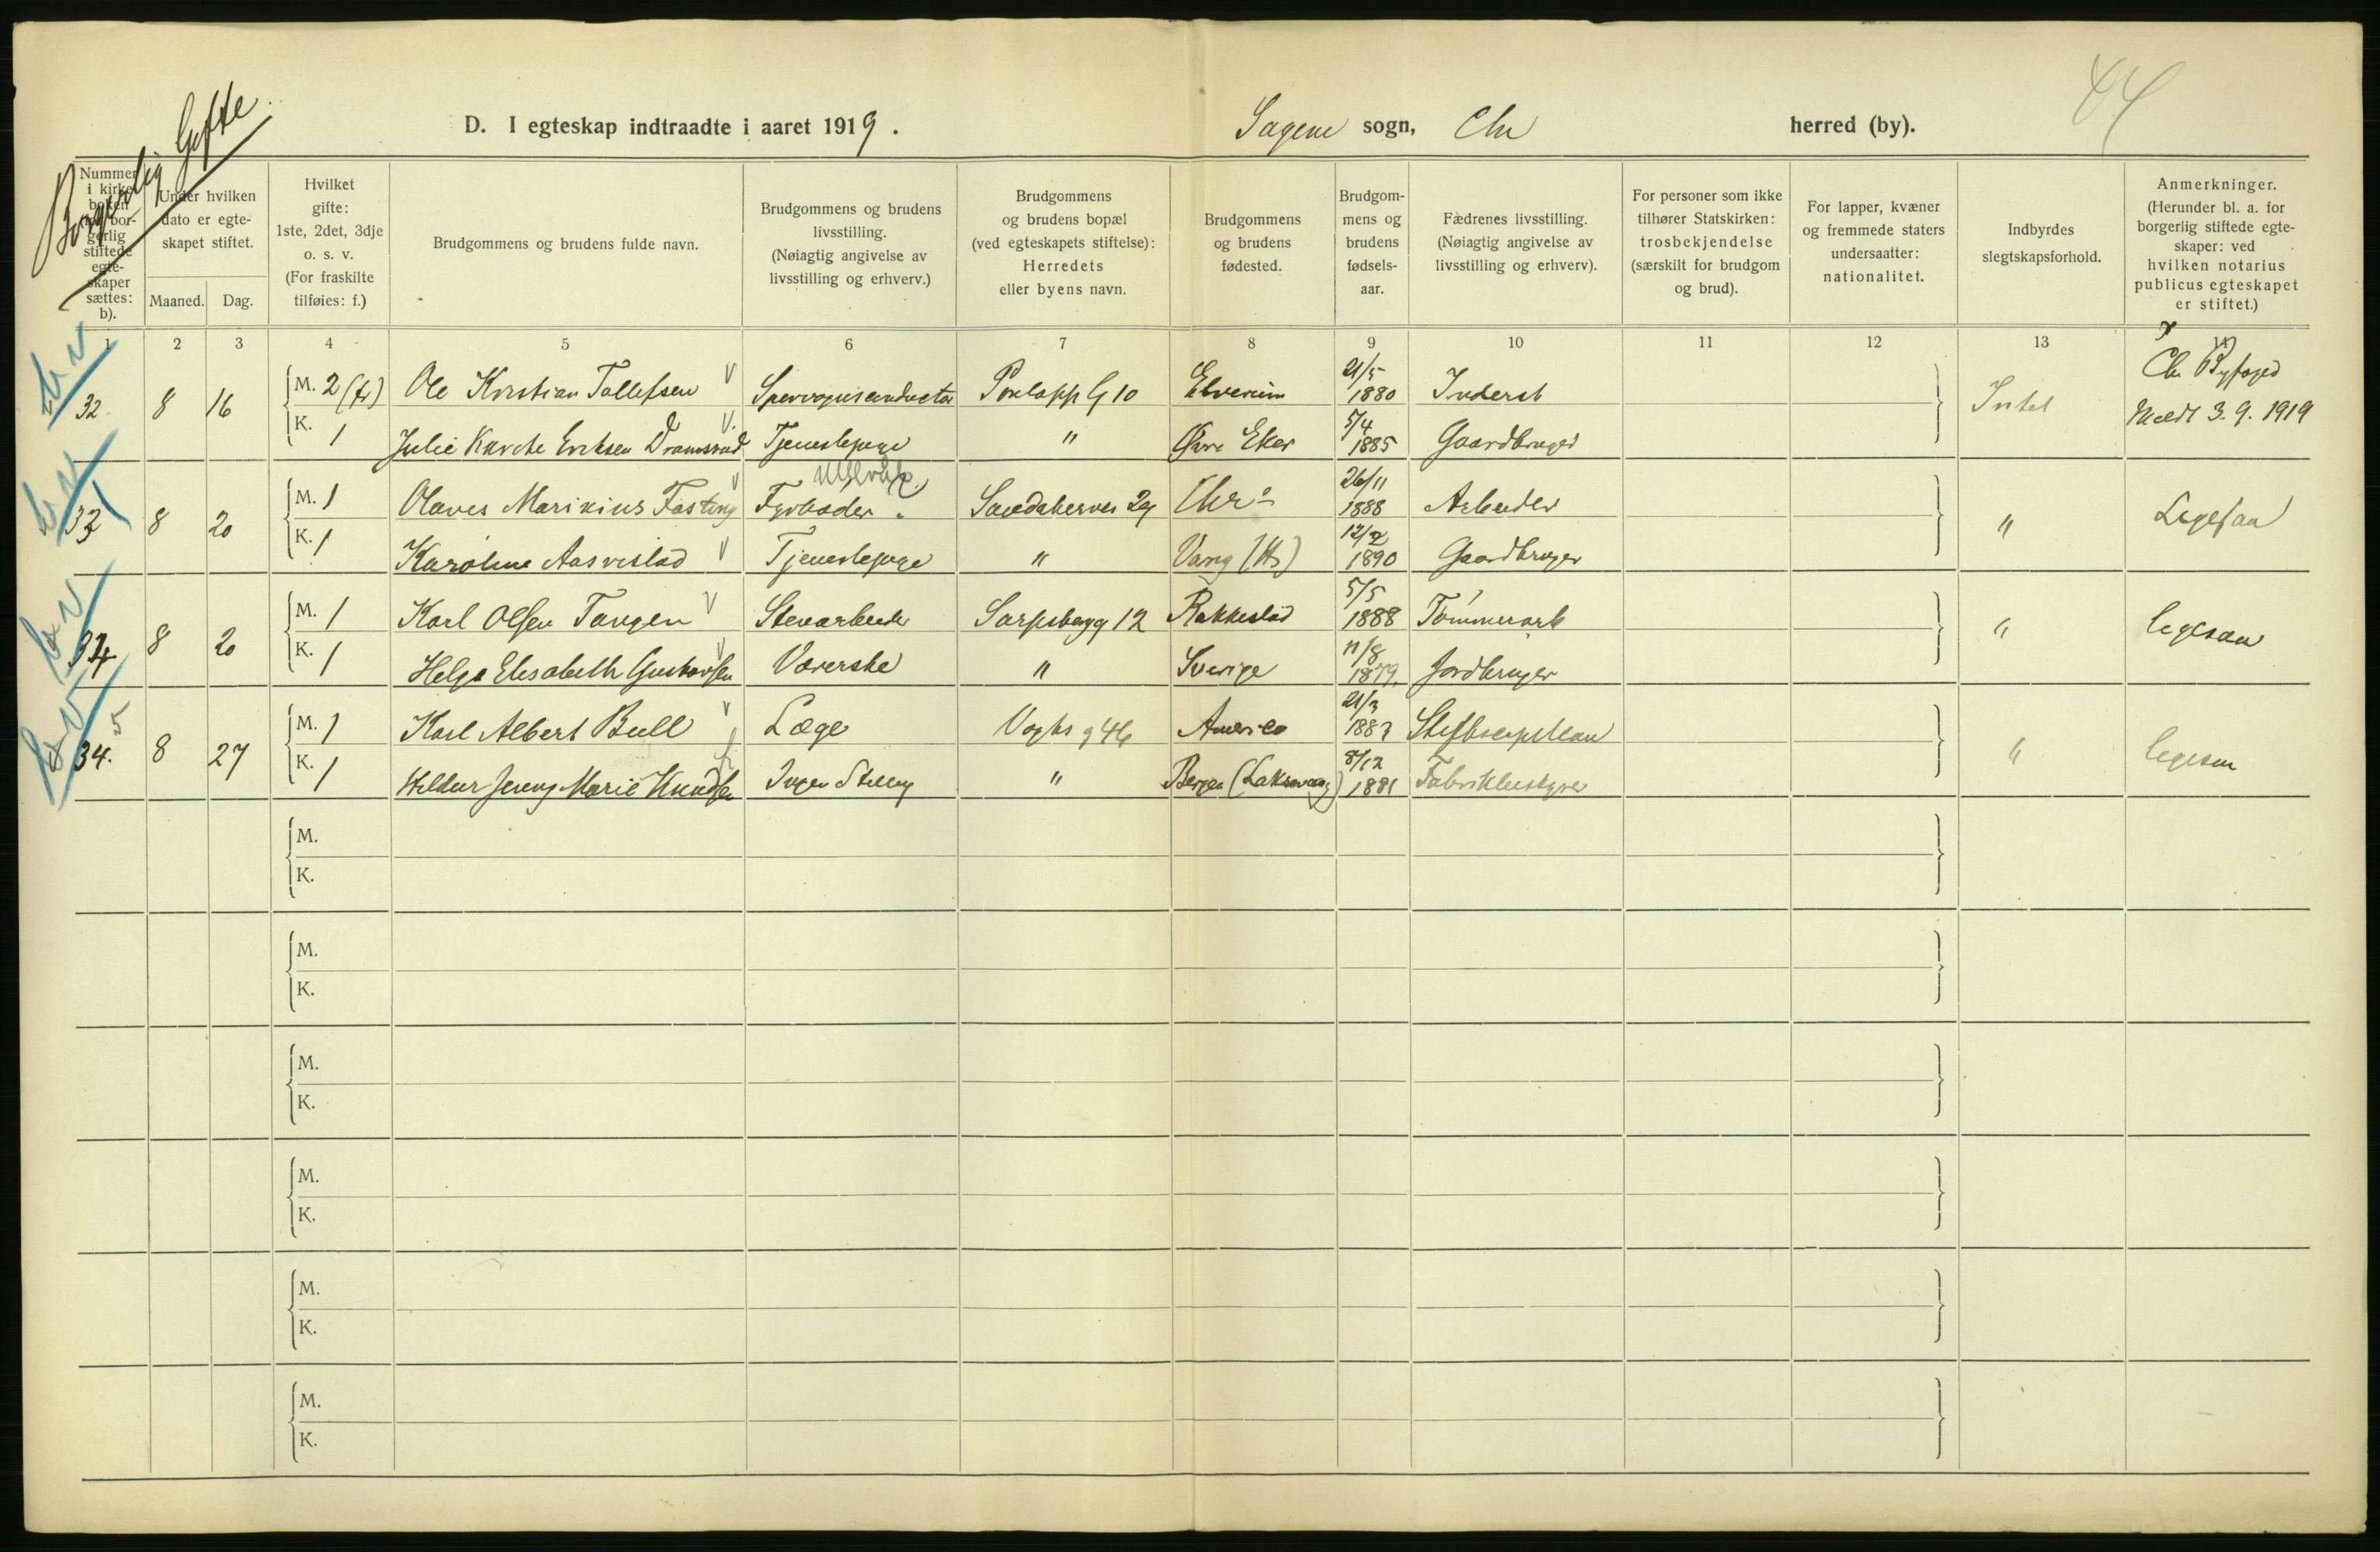 Borgerlig Gifte.
44
D. I egteskap indtraadte i aaret 1919. Sagene sogn, Chr herred (by).
Nummer i kirkeboken for borgerlig stiftede egteskaper sættes: b).
Under hvilken dato er egteskapet stiftet.
Maaned. Dag.
Hvilket gifte: 1ste, 2det, 3dje o. s. v. (For fraskilte tilføies: f.)
Brudgommens og brudens fulde navn.
Brudgommens og brudens livsstilling. (Nøiagtig angivelse av livsstilling og erhverv.)
Brudgommens og brudens bopæl (ved egteskapets stiftelse): Herredets eller byens navn.
Brudgommens og brudens fødested.
Brudgommens og brudens fødselsaar.
Fædrenes livsstilling. (Nøiagtig angivelse av livsstilling og erhverv).
For personer som ikke tilhører Statskirken: trosbekjendelse (særskilt for brudgom og brud).
For lapper, kvæner og fremmede staters undersaatter: nationalitet.
Indbyrdes slegtskapsforhold.
Anmerkninger. (Herunder bl. a. for borgerlig stiftede egteskaper: ved hvilken notarius publicus egteskapet er stiftet.)
1 2 3 4 5 6 7 8 9 10 11 12 13 14
32 8 16 M. 2 (fr) Ole Kristian Tollefsen Sporvognsconductør 10 Elverum 21/5 1880 Inderst Intet Chr Byfoged
K. 1 Julie Eriksen Dramsrud Tjenestepige " Øvre Eker 5/4 1885 Gaardbruger Meldt 3.9.1919
33 8 20 M. 1 Olaves Marinius Fasting Fyrbøder Ullevål Sandakerveien 29 Chr. 26/11 1888 Arbeider " Ligesaa
K. 1 Karoline Aasvestad Tjenestepige " Vang (H) 12/2 1890 Gaardbruger
34 8 20 M. 1 Karl Olsen Tangen Stenarbeider Sarpsborgg 12 Rakkestad 5/5 1888 Tømmerarb " ligesaa
K. 1 Helga Elisabeth Gustavsen Væverske " Sverige 11/8 1879 Jordbruger
34. 5 8 27 M. 1 Karl Albert Bull Læge Vogts g 46 America 21/3 1883 " ligesaa
K. 1 Hildur Jenny Marie Knudsen Ingen Stilling " Bergen (Laksevaag) 8/12 1881 Fabrikbestyrer
M.
K.
M.
K.
M.
K.
M.
K.
M.
K.
M.
K.